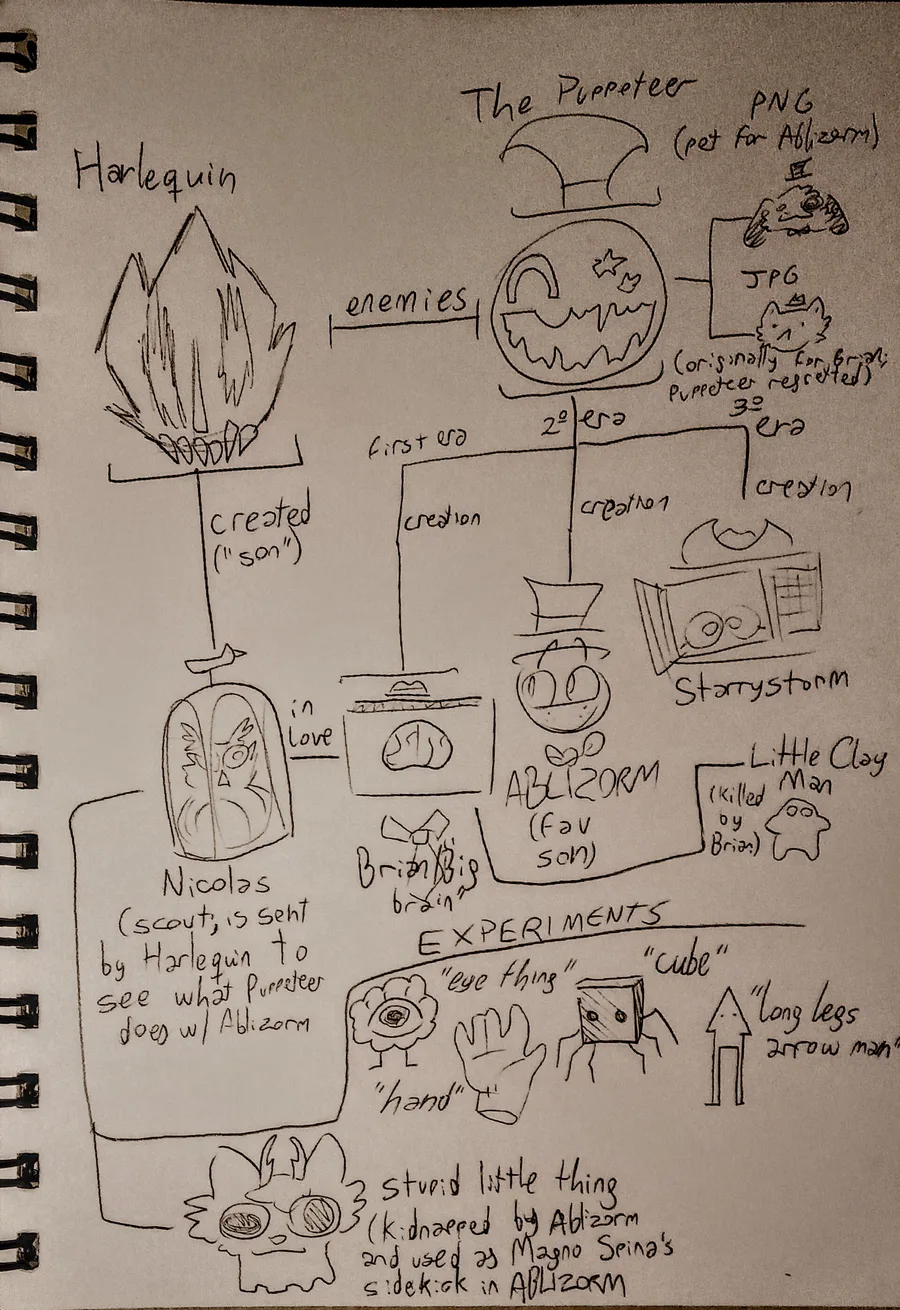 The Puppeteer
PNG
(pet for Ablizorm)
Harlequin
JPG
enemies
(originally for Brian;
Puppeteer regretted)
first era
2º era
3º
era
created
("son")
creation
creation
creation
Starrystorm
in
love
ABLIZORM
(fav
son)
Little Clay
Man
(killed
by
Brian)
Brian/Big
brain"
Nicolas
(scout, is sent
by Harlequin to
see what Puppeteer
does w/ Ablizorm
EXPERIMENTS
"eye thing"
"cube"
"long legs
arrow man"
"hand"
stupid little thing
(kidnapped by Ablizorm
and used as Magno Spina's
sidekick in ABLIZORM